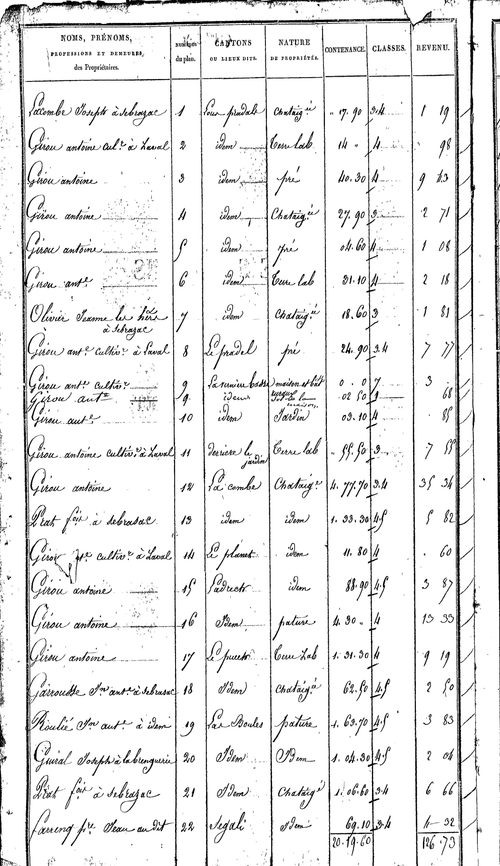 NOMS, PRÉNOMS, PROFESSIONS ET DEMEURES, des Propriétaires. numéros du plan. CANTONS OU LIEUX DITS. NATURE DE PROPRIÉTÉS. CONTENANCE. CLASSES. REVENU.
Lacombe Joseph à sebrazac 1 Lou pradals Chataig.e " 17. 90 3.4 1 19
Girou antoine cul.r à Laval 2 idem Terre lab 14 " 4 98
Girou antoine 3 idem pré 40.30 4 9 43
Girou antoine 4 idem Chataig.e 27.90 3 2 71
Girou antoine 5 idem pré 04.60 4 1 08
Girou ant.e 6 idem Terre lab 31.10 4 2 18
Olivier Jeanne les à sebrazac 7 idem Chataig.e 18.60 3 1 81
Girou ant.e cultiv.r à Laval 8 Le pradel pré 24.90 3.4 7 77
Girou ant.e cultiv.r 9 maison et 0 . 0 7 3 .
Girou ant.e 9 idem sol de la maison 02 50 1 68
Girou ant.e 10 idem Jardin 03.10 4 . 85
Girou antoine cultiv.r à Laval 11 derriere le jardin Terre lab " 55.50 3 7 55
Girou antoine 12 La combe Chataig.e 4. 77.70 3.4 35 34
Prat à sebrasac 13 idem idem 1. 33.30 4.5 5 82
Girou cultiv.r à Laval 14 idem 11. 80 4 . 60
Girou antoine 15 idem 88.90 4.5 3 87
Girou antoine 16 Idem pature 4. 30 " 4 13 33
Girou antoine 17 Terre Lab 1. 31. 30 4 9 19
ant.e à sebrasac 18 Idem Chataig.e 62.50 4.5 2 50
Roulié ant.e à idem 19 Las Boules pature 1. 63.70 4.5 3 83
Guiral Joseph à 20 Idem Idem 1. 04.30 4.5 2 04
Prat à sebrazac 21 Idem Chataig.e 1. 06.60 3.4 6 66
Jean au dit 22 Segali Idem 69.10 3.4 4 32
20.19.60 126.73